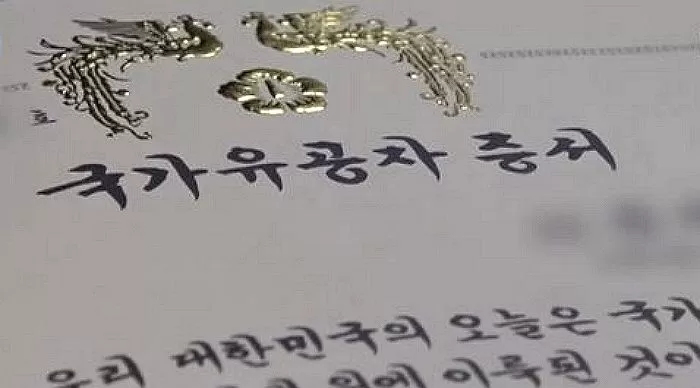 호
국가유공자 증서
우리 대한민국의 오늘은 국가
위에 이룩된 것이